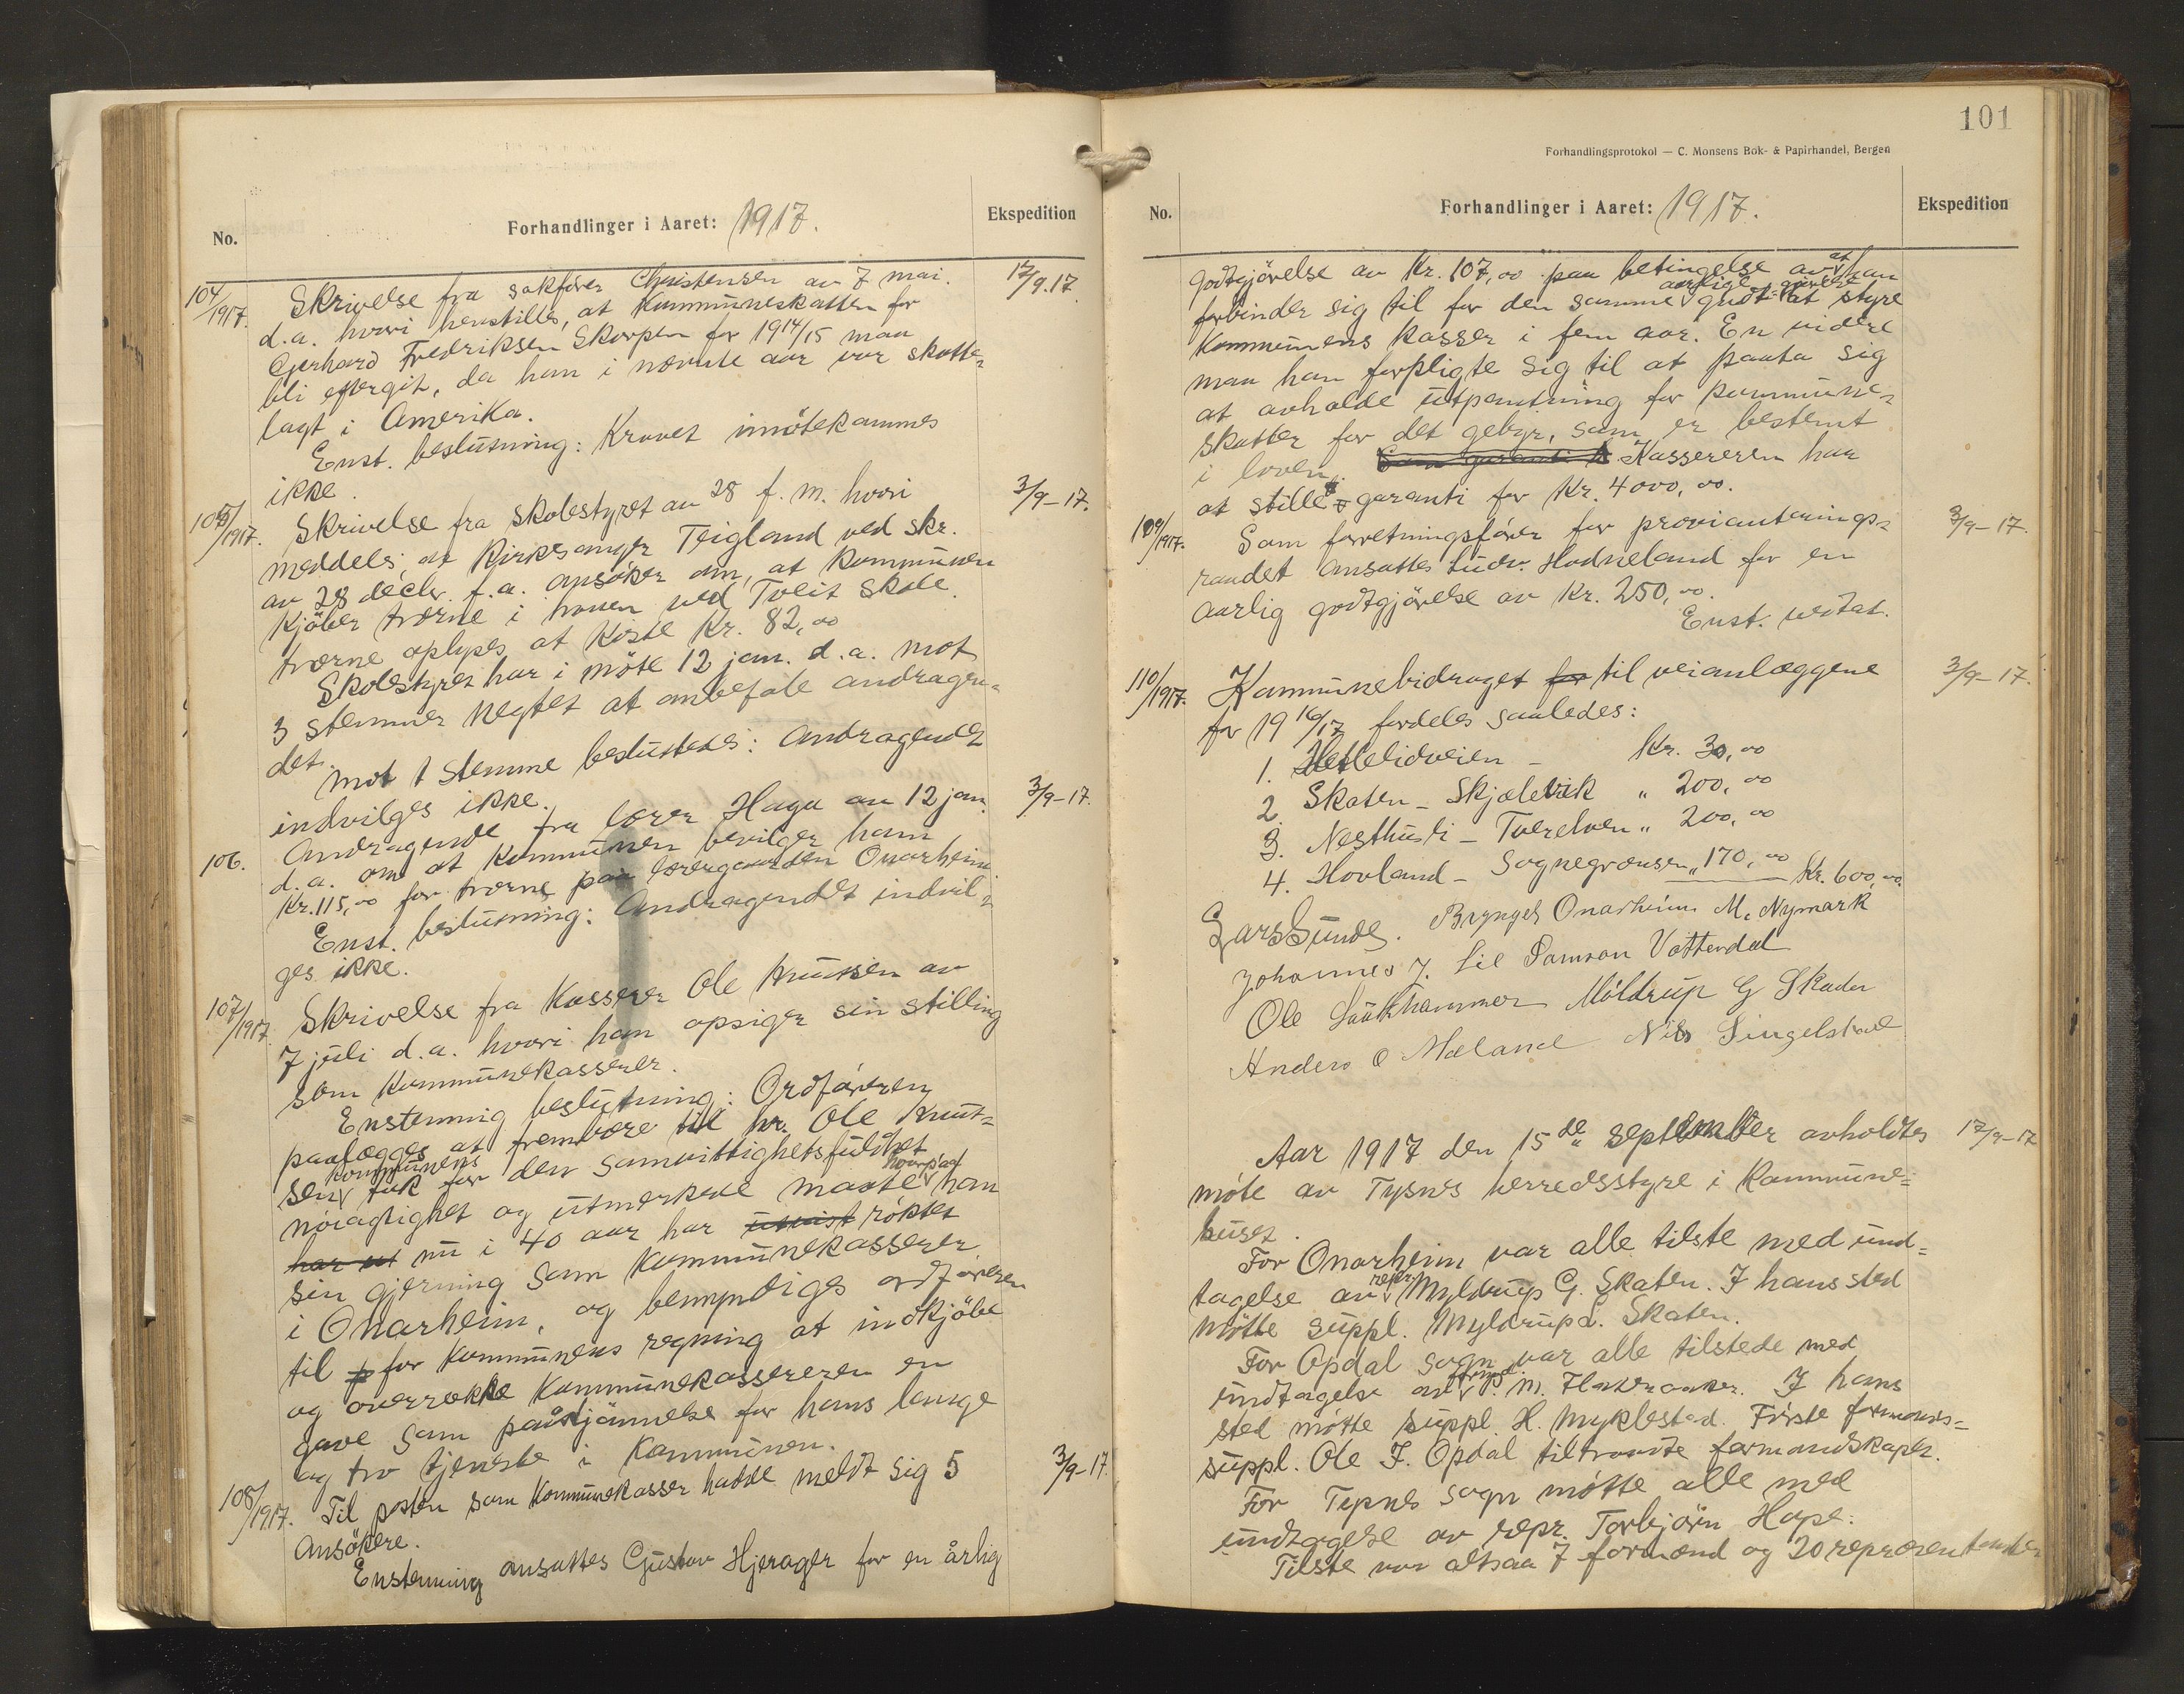 No.
Forhandlinger i Aaret: 1917.
Ekspedition
104/1917. Skrivelse fra sakförer Christensen av 7 mai. 17/9.17.
d.a. hvori henstilles, at Kommuneskatten for
Gerhard Fredriksen Skorpen for 1914/15 maa
bli eftergit, da han i nævnte aar var skatte-
lagt i Amerika.
Enst. beslutning: Kravet imötekommes
ikke.
105/1917. Skrivelse fra skolestyret av 28 f. m. hvori 3/9-17.
meddeles, at Kirkesanger Teigland ved skr.
av 28 decbr. f.a. ansöker om, at kommunen
Kjöber trærne i haven ved Tveit skole.
trærne oplyses at koste Kr. 82,00
Skolestyret har i möte 12 jan. d.a. mot
3 stemmer negtet at anbefale andragen-
det.
Mot 1 stemme besluttedes: Andragendet
indvilges ikke.
106. Andragende fra lærer Haga av 12 jan. 3/9-17.
d.a. om at Kommunen bevilger ham
Kr. 115,00 for trærne paa lærergaarden Onarheim.
Enst. beslutning: Andragendet indvil-
ges ikke.
107/1917. Skrivelse fra Kasserer Ole Knutsen av
7 juli d.a. hvori han opsiger sin stilling
som Kommunekasserer.
Enstemmig beslutning: Ordföreren
paalægges at frembære til hr. Ole Knut-
sen kommunens tak for den samvittighetsfuldhet
nöiagtighet og utmerkede maate hvorpaa han
har ut nu i 40 aar har utvist röktet
sin gjerning som Kommunekasserer
i Onarheim, og bemyndiges ordföreren
til for Kommunens regning at indkjöbe
og overrække Kommunekassereren en
gave som paaskjönnelse for hans lange
og tro tjeneste i Kommunen.
108/1917. Til posten som Kommunekasser hadde meldt sig 5 3/9-17.
Ansökere.
Enstemmig ansattes Gustav Hjerager for en årlig
101
Forhandlingsprotokol — C. Monsens Bok- & Papirhandel, Bergen
No.
Forhandlinger i Aaret: 1917.
Ekspedition
godtgjörelse av Kr. 107,00 paa betingelse av at han
forbinder sig til for den samme aarlige godt-gjörelse at styre
Kommunens Kasser i fem aar. En videre
maa han forpligte sig til at paata sig
at avholde utpantning for kommune-
skatter for det gebyr, som er bestemt
i loven. Som garanti Kassereren har
at stille garanti for Kr. 4000,00.
109/1917. Som forretningsförer for provianterings- 3/9-17.
raadet ansattes Ludv. Hodneland for en
aarlig godtgjörelse av Kr. 250,00.
Enst. vedtat.
110/1917. Kommunebidraget for til veianlæggene 3/9-17.
for 1916/17 fordeles saaledes:
1. Hetlelidveien - Kr. 30,00
2. Skaten - Skjælevik " 200,00
3. Nesthusli - Tverelven " 200,00
4. Hovland - Sognegrænsen " 170,00 Kr. 600,00.
Lars Sunde. Brynjel Onarheim M. Nymark
Johannes J. Lie Samson Vattendal
Ole Laukhammer Müldrup G Skaden
Anders O Mæland Nils Singelstad
Aar 1917 den 15de september avholdtes 17/9-17
möte av Tysnes herredsstyre i Kommune-
huset.
For Onarheim var alle tilste med und-
tagelse av repr. Myldrup G. Skaten. I hans sted
mötte suppl. Myldrup L. Skaten.
For Opdal sogn var alle tilstede med
undtagelse av M. Flakeraaker. I hans
sted mötte suppl. H. Myklestad. Förste formands-
suppl. Ole J. Opdal tiltraadte formandskapet.
For Tysnes sogn mötte alle med
undtagelse av repr. Torbjörn Hope.
Tilste var altsaa 7 formænd og 20 repræsentanter